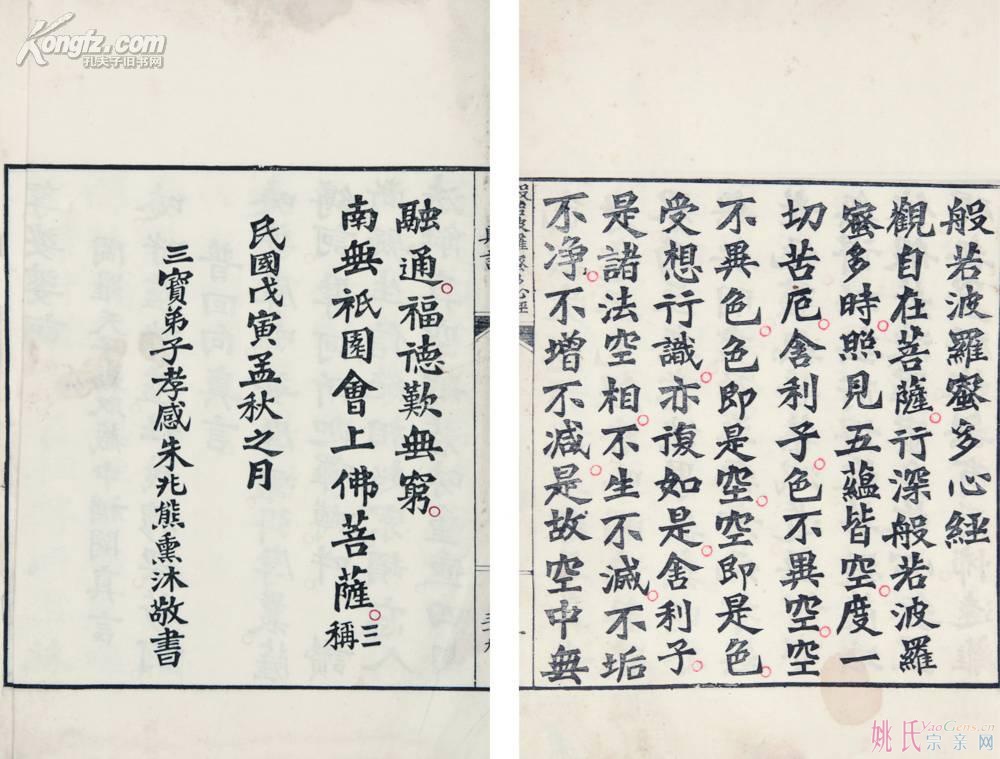 般若波羅蜜多心經
觀自在菩薩。行深般若波羅
蜜多時。照見五蘊皆空。度一
切苦厄。舍利子。色不異空。空
不異色。色即是空。空即是色。
受想行識。亦復如是。舍利子。
是諸法空相。不生不滅。不垢
不净。不增不減。是故空中無
融通。福德歎無窮。
南無祇園會上佛菩薩。三稱
民國戊寅孟秋之月
三寶弟子孝感朱兆熊熏沐敬書
Kongfz.com
孔夫子旧书网
YaoGens.cn
姚氏宗亲网